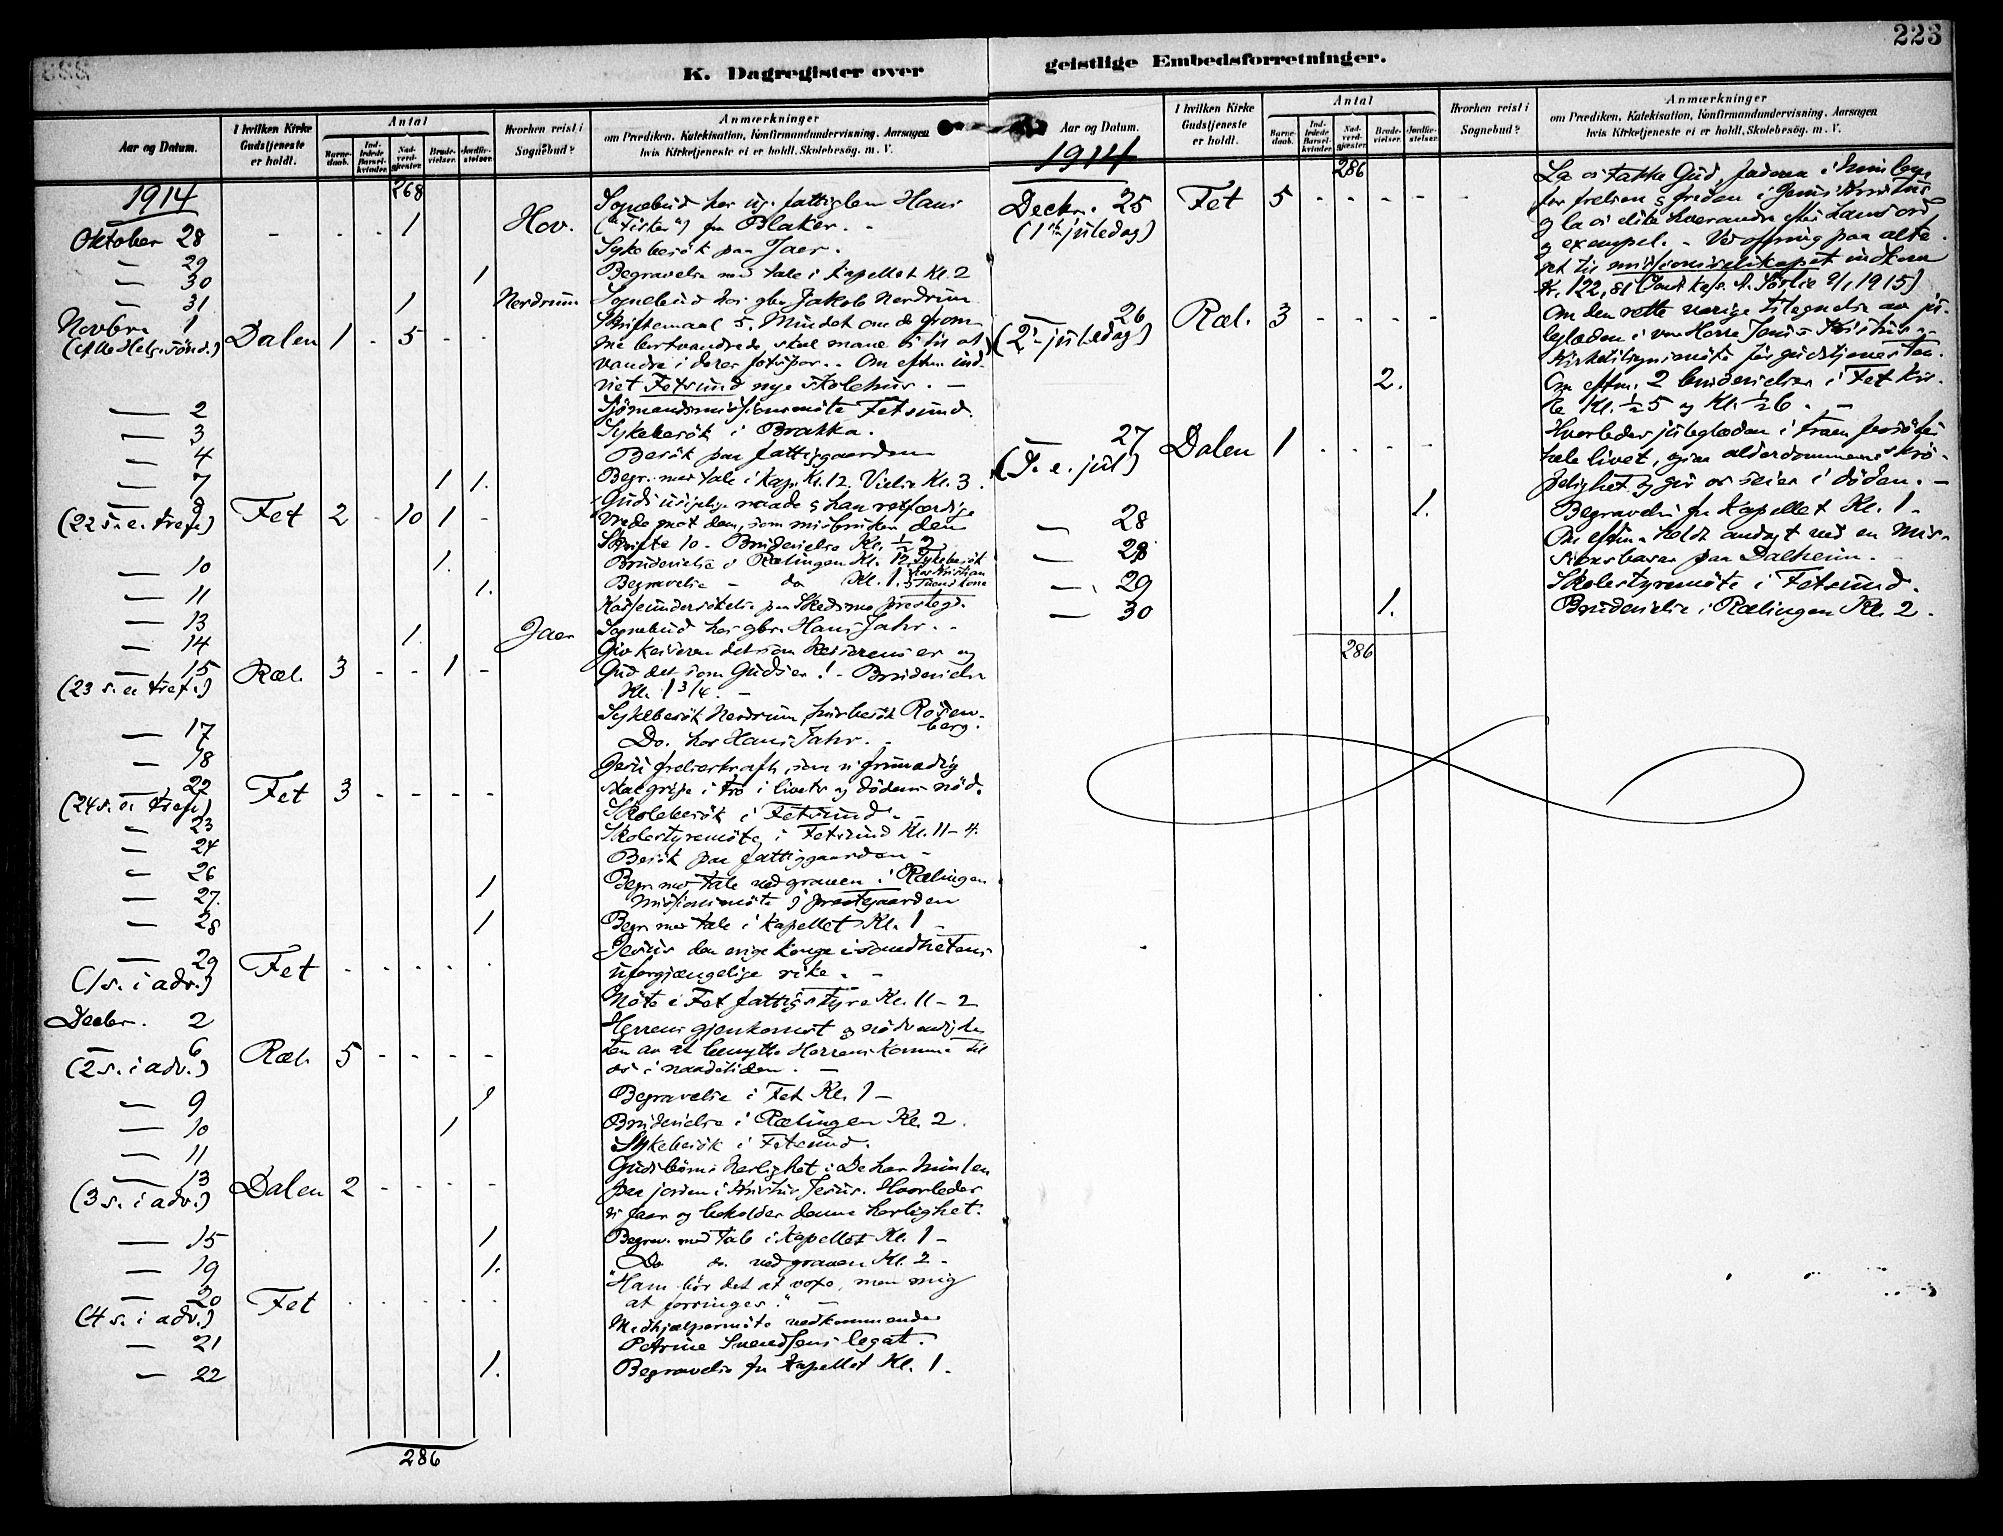 223
K. Dagregister over
geistlige Embedsforretninger.
Aar og Datum.
I hvilken Kirke Gudstjeneste er holdt.
Antal
Barne-daab.
Ind-ledede Barsel-kvinder
Nad-verd-gjester
Brude-vielser.
Jordfæ-stelser.
Hvorhen reist i Sognebud?
Anmærkninger
om Prædiken, Katekisation, Konfirmandundervisning, Aarsagen
hvis Kirketjeneste ei er holdt, Skolebesög. m. V.
1914
268
Oktober 28 - - . 1 Hov. Sognebud hos ug. fattiglem Hans
("Fisker") fra Blaker. -
— 29 Sykebesök paa Jaer.
— 30 1 Begravelse med tale i Kapellet Kl. 2
— 31 1 Nerdrum Sognebud hos gbr. Jakob Nerdrum
Novbr. 1 Dalen 1 - 5 - - Skriftemaal 5. Mindet om de from-
(Alle Helg. sönd.) me bortvandrede skal mane os til at
vandre i deres fotspor. - Om eftm. ind-
viet Fetsund nye skolehus. -
— 2 Sjömandsmissionsmöte Fetsund.
— 3 Sykebesök i Brakka.
— 4 Besök paa fattiggaarden
— 7 1 1. Begr. med tale i kap. Kl. 12. Vielse Kl. 3.
— 8 Fet 2 - 10 1 - Guds naade & hans retfærdige
(22 s. e. tref.) vrede mot dem, som misbruker den
Skrifte 10 - Brudevielse Kl. ½ 2
— 10 1. Brudevielse i Rælingen Kl. 12. Sykebesök
— 11 1. Begravelse - do Kl. 1.
— 13 Kasseundersökelse paa Skedsmo prestegd.
— 14 1. Jaer Sognebud hos gbr. Hans Jahr. -
— 15 Ræl. 3 - - 1 - Giv keiseren det som keiserens er og
(23 s. e. tref.) Gud det som Guds er! - Brudevielse
Kl. 1 3/4. -
— 17 Sykebesök Nerdrum, husbesök Rosen-
berg.
— 18 Do. hos Hans Jahr. -
— 22 Fet 3 - - - - Jesu frelserkraft, som vi frimodig
(24 s. e. tref.) skal gripe i tro i livets og dödens nöd.
— 23 Skolebesök i Fetsund. -
— 24 Skolestyremöte i Fetsund Kl. 11-4.
— 26 Besök paa fattiggaarden -
— 27. 1 Begr. med tale ved graven i Rælingen
Missionsmöte i prestegaarden
— 28 1 Begr. med tale i kapellet Kl. 1 -
— 29 Fet - - - - - Jesus den evige konge i sandhetens
(1 s. i adv.) uforgjængelige rike. -
Decbr. 2 Möte i Fet fattigstyre Kl. 11-2
— 6 Ræl. 5 - - - - Herrens gjenkomst & nödvendighe-
(2 s. i adv.) ten av at benytte Herrens komme til
os i naadetiden. -
— 9 1 Begravelse i Fet Kl. 1 -
— 10 1 Brudevielse i Rælingen Kl. 2.
— 11 Sykebesök i Fetsund.
— 13 Dalen 2 - - - - Guds börns herlighet: De har himlen
(3 s. i adv.) paa jorden i Kristus Jesus. Hvorledes
vi faar og beholder denne herlighet.
— 15 1 Begrav. med tale i kapellet Kl. 1 -
— 19 1. Do do. ved graven Kl. 2 -
— 20 Fet - - - - - "Ham bör det at voxe, men mig
(4 s. i adv.) at forringes." -
— 21 Medhjælpermöte vedkommende
Petrine Svendsens legat.
— 22 1. Begravelse fra kapellet Kl. 1.
286
Aar og Datum.
I hvilken Kirke Gudstjeneste er holdt.
Antal
Barne-daab.
Ind-ledede Barsel-kvinder
Nad-verd-gjester
Brude-vielser.
Jordfæ-stelser.
Hvorhen reist i Sognebud?
Anmærkninger
om Prædiken, Katekisation, Konfirmandundervisning, Aarsagen
hvis Kirketjeneste ei er holdt, Skolebesög. m. V.
1914
286
Decbr. 25 Fet 5 - - - - - La os takke Gud, faderen i himlen,
(1ste juledag) for frelsen & freden i Jesus Kristus
og la os elske hverandre efter hans ord
og exempel. - Ved ofring paa alte-
ret til missionsselskapet indkom
Kr. 122,81
— 26 Ræl. 3 - - - - Om den rette varige tilegnelse av ju-
(2. juledag) leglæden i vor Herre Jesus Kristus. -
Kirketilsynsmöte för gudstjenesten.
2. Om eftm. 2 brudevielser i Fet kir-
ke Kl. ½ 5 og Kl. ½ 6. -
— 27 Dalen 1 - - - Hvorledes juleglæden i troen
(S. e. jul) livet, alderdommens skrö-
pelighet og gir os seier i döden. -
— 28 1. Begravelse fra kapellet Kl. 1 -
— 28 Om eftm. holdt andagt ved en mis-
sionsbasar paa Dalheim. -
— 29 Skolestyremöte i Fetsund.
— 30 1. Brudevielse i Rælingen Kl. 2.
286